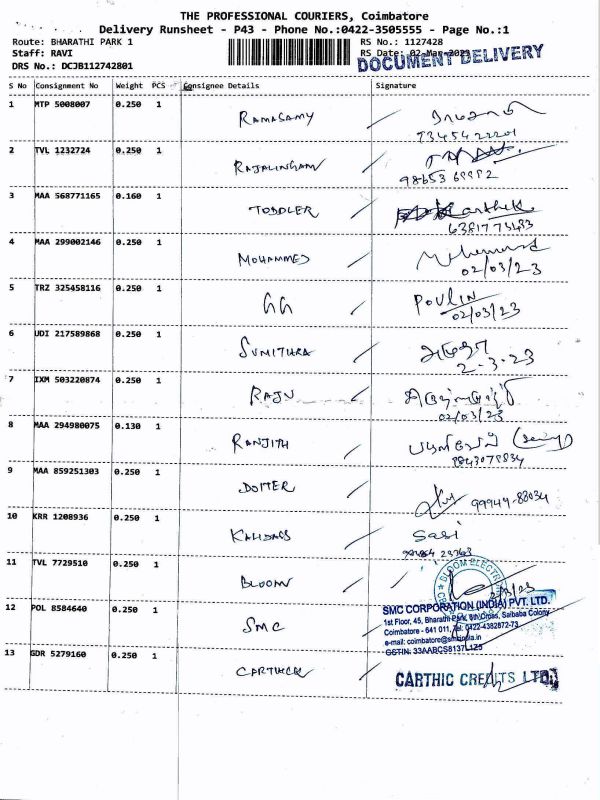 THE PROFESSIONAL COURIERS, Coimbatore
Delivery Runsheet - P43 - Phone No.:0422-3505555 - Page No.:1
Route: BHARATHI PARK 1 RS No.: 1127428
Staff: RAVI RS Date: 02-Mar-2023
DRS No.: DCJB112742801 DOCUMENT DELIVERY
S No Consignment No Weight PCS Consignee Details Signature
1 MTP 5008007 0.250 1 RAMASAMY
2 TVL 1232724 0.250 1 RAJALINGAM
3 MAA 568771165 0.160 1 TODDLER
4 MAA 299002146 0.250 1 MOHAMMED
02/03/23
5 TRZ 325458116 0.250 1 GG POULIN
02/03/23
6 UDI 217589868 0.250 1 SUMITHRA
2-3-23
7 IXM 503220874 0.250 1 RAJU
02/03/23
8 MAA 294980075 0.130 1 RANJITH
9 MAA 859251303 0.250 1 99949-88034
10 KRR 1208936 0.250 1 KALIDASS Sasi
11 TVL 7729510 0.250 1 BLOOM BLOOM ELECTR
12 POL 8584640 0.250 1 SMC SMC CORPORATION (INDIA) PVT. LTD.
1st Floor, 45, Bharathi Park, 8th Cross, Saibaba Colony
Coimbatore - 641 011, Tel: 0422-4382872-73
e-mail: coimbatore@smcindia.in
GSTIN: 33AABCS8137L1Z5
13 GDR 5279160 0.250 1 CARTHICK CARTHIC CREDITS LTD.